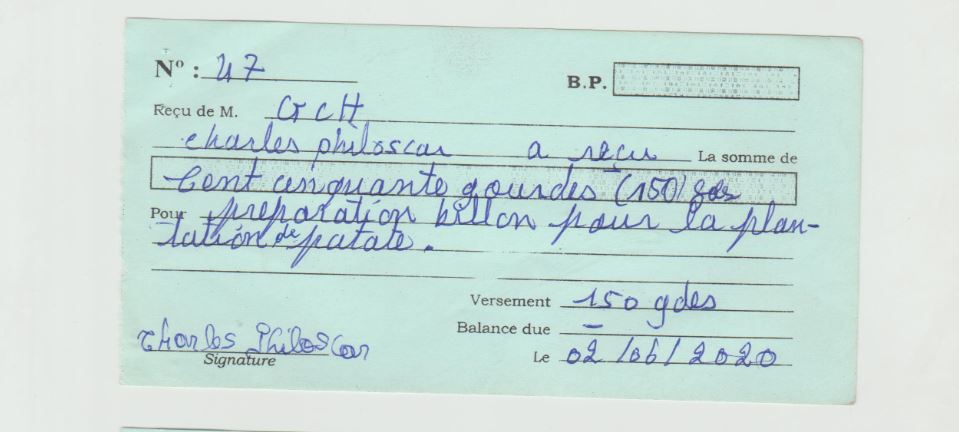 N° : 47
B.P.
Reçu de M. GCH
charles philoscar a reçu La somme de
Cent cinquante gourdes (150) gdes
Pour preparation billon pour la plan-
tation de patate.
Versement 150 gdes
Balance due –
Charles Philoscar
Signature
Le 02/06/2020